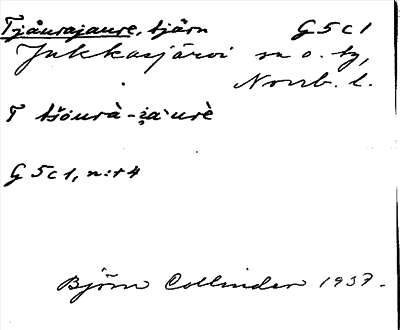 Tjåurajaure, tjärn G5c1
Jukkasjärvi sn o. tg,
Norrb. l.
T tšåurà-i̯a`urè
G 5c1, n:r 4
Björn Collinder 1937.